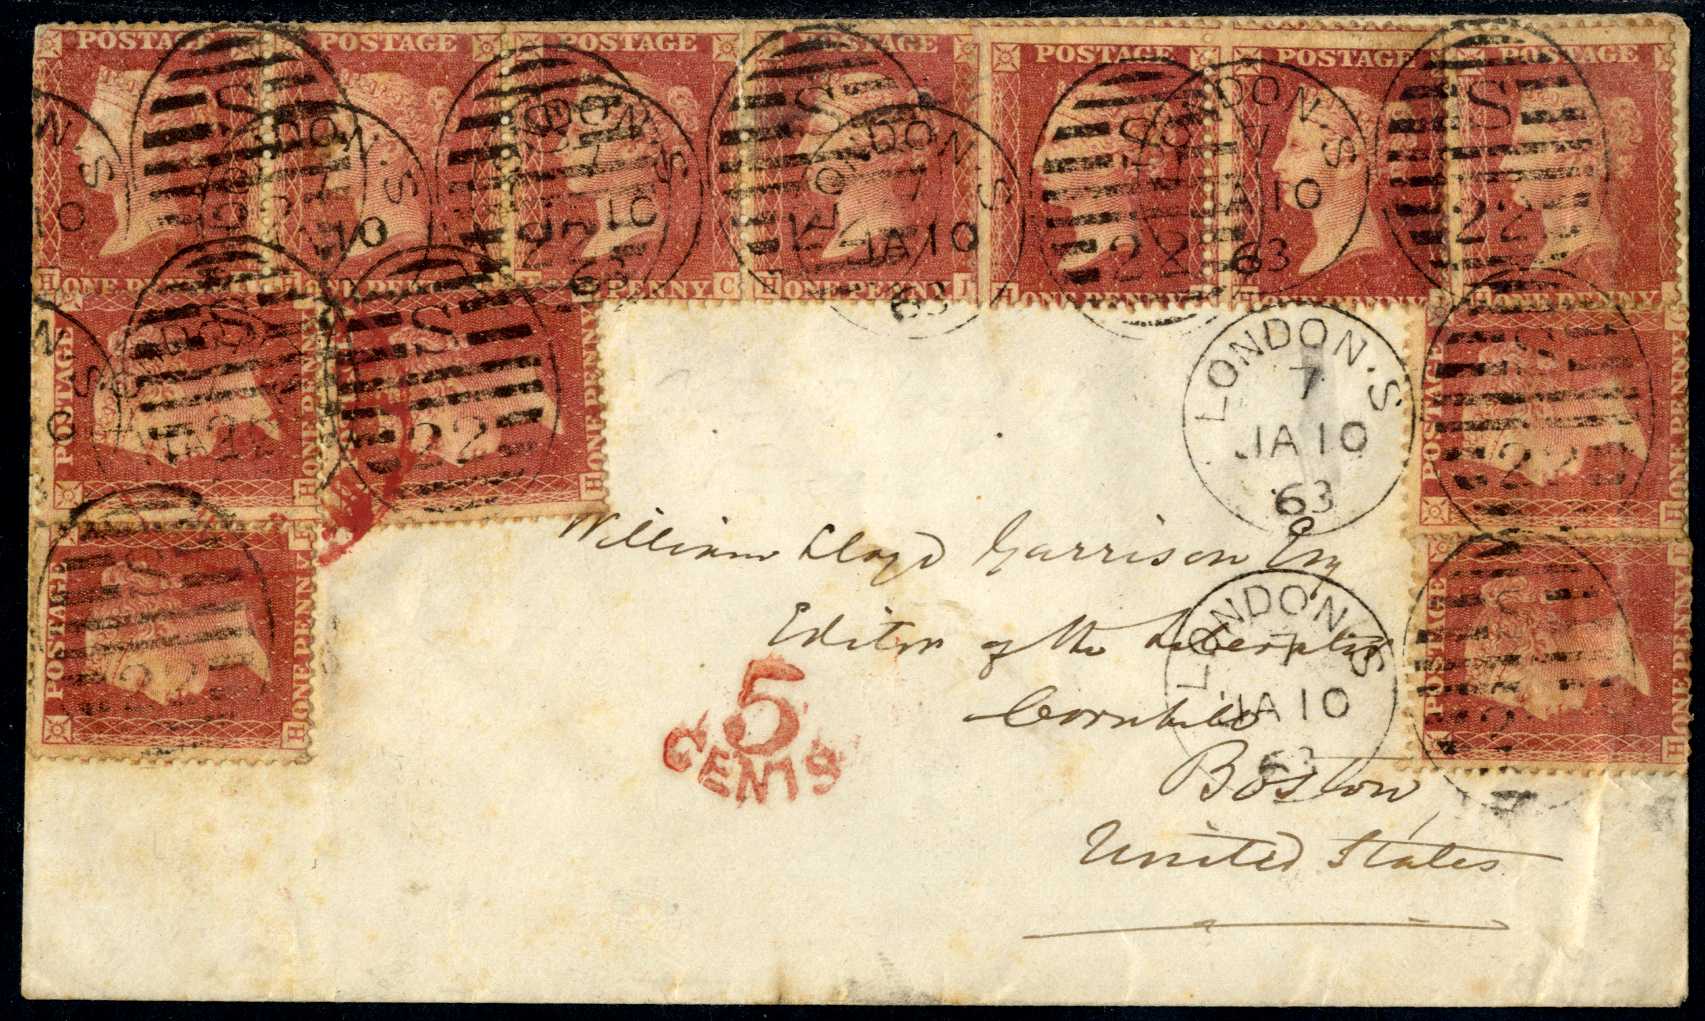 POSTAGE POSTAGE POSTAGE POSTAGE POSTAGE POSTAGE POSTAGE
LONDON.S
7
JA 10
63
S
22
H ONE PENNY
H ONE PENNY
ONE PENNY C
H ONE PENNY I
H ONE PENNY
ONE PENNY
H ONE PENNY
POSTAGE
H ONE PENNY
S
22
H ONE PENNY
POSTAGE
S
22
H ONE PENNY
LONDON.S
7
JA 10
63
POSTAGE
S
22
H ONE PENNY
William Lloyd Garrison Esq
Editor of the Liberator
Cornhill
Boston
United States
LONDON.S
7
JA 10
63
POSTAGE
H ONE PENNY
5
CENTS